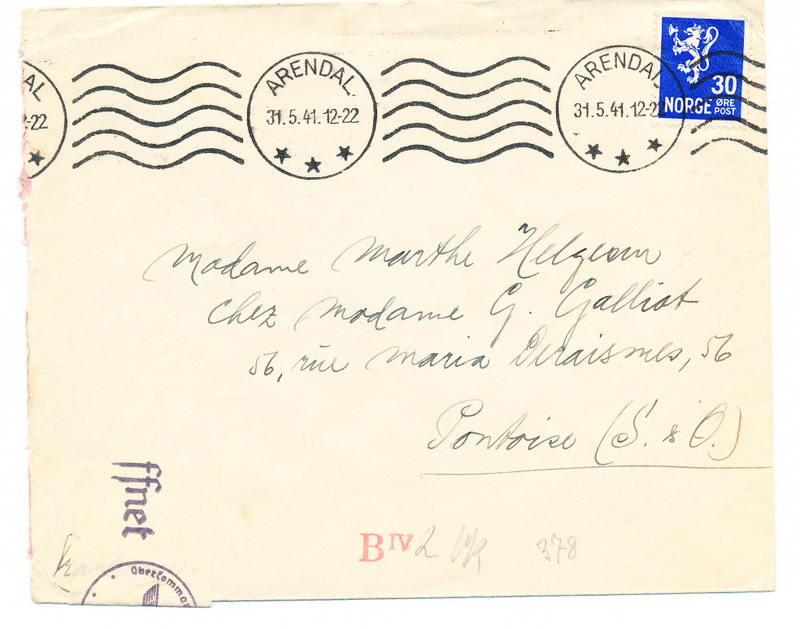 AL
ARENDAL
ARENDAL
-22
31.5.41.12-22
31.5.41.12-22
30
NORGE ØRE
POST
Madame Marthe Helgesen
chez Madame G. Galliot
56, rue Maria Deraismes, 56
Pontoise (S. & O.)
ffnet
Oberkomman
BIV 2 378